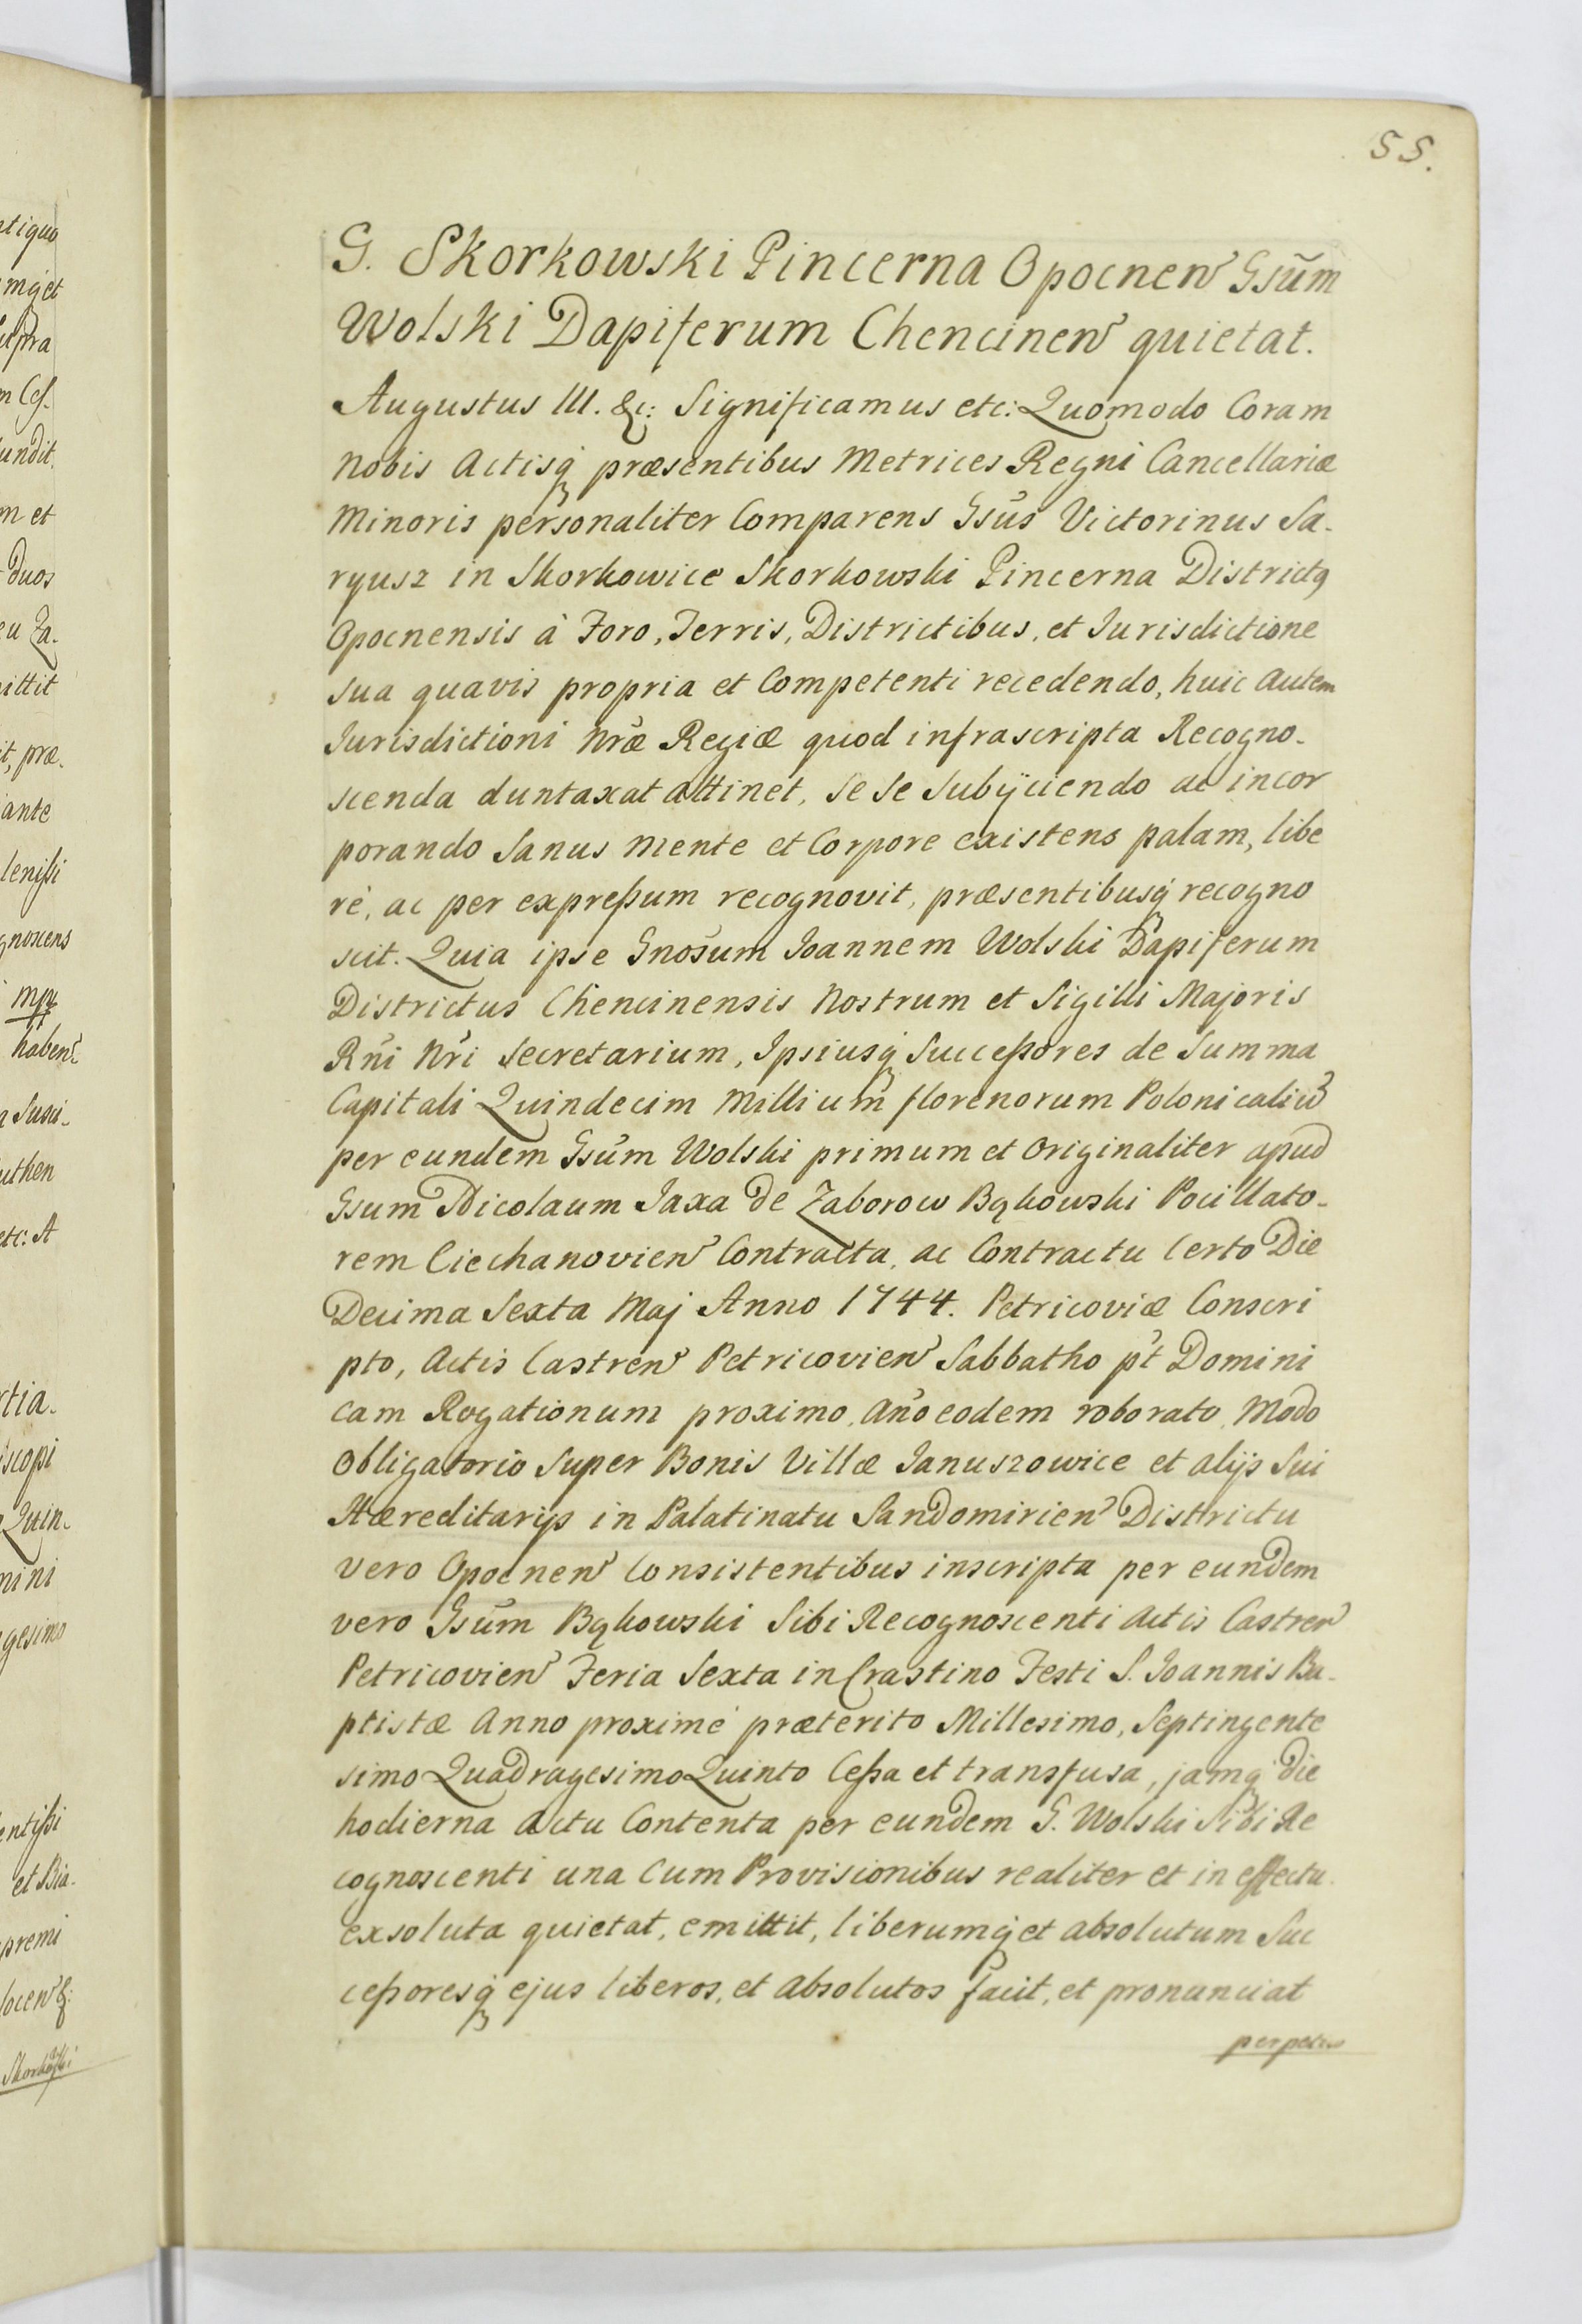 55.
G. Skorkowski Pincerna Opocnen̄ Gsūm
Wolski Dapiferum Chencinen̄ quietat.
Augustus III. &c: Significamus etc: Quomodo Coram
Nobis Actisq̨ præsentibus Metrices Regni Cancellariæ
Minoris personaliter Comparens Gsūs Victorinus Sa-
ryusz in Skorkowice Skorkowski Pincerna Districtq
Opocnensis à Foro, Terris, Districtibus, et Iurisdictione
sua quavis propria et Competenti recedendo, huic autem
Iurisdictioni Nr̄æ Regiæ quod infrascripta Recogno-
scenda duntaxat attinet, se se subijciendo ac incor
porando Sanus mente et Corpore existens palam, libe
rè, ac per expreßum recognovit, præsentibusq̨ recogno
scit. Quia ipse Gnōsum Ioannem Wolski Dapiferum
Districtus Chencinensis Nostrum et Sigilli Majoris
Rn̄i Nr̄i Secretarium, Ipsiusq̨ Succeßores de Summa
Capitali Quindecim Millium florenorum Polonicaliū
per eundem Gsūm Wolski primum et Originaliter apud
Gsum Nicolaum Jaxa de Zaborow Bąkowski Pocillato-
rem Ciechanovien̄ Contracta, ac Contractu Certo Die
Decima Sexta Maj Anno 1744. Petricoviæ Conscri
pto, Actis Castren̄ Petricovien̄ Sabbatho pt̄ Domini
cam Rogationum proximo, An̄o eodem roborato, Modo
Obligatorio super Bonis Villæ Januszowice et alijs Sui
Hæreditarijs in Palatinatu Sandomirien̄ Districtu
vero Opocnen̄ Consistentibus inscripta per eundem
vero Gsūm Bąkowski Sibi Recognoscenti Actis Castren̄
Petricovien̄ Feria Sexta in Crastino Festi S. Ioannis Ba-
ptistæ Anno proximè præterito Millesimo, Septingente
simo Quadragesimo Quinto Ceßa et transfusa, jamq̨ Die
hodierna Actu Contenta per eundem G. Wolski Sibi Re
cognoscenti una Cum Provisionibus realiter et in effectu
exsoluta quietat, emittit, liberumq̨ et absolutum Suc
ceßoresq̨ ejus liberos, et absolutos facit, et pronunciat
perpetuo